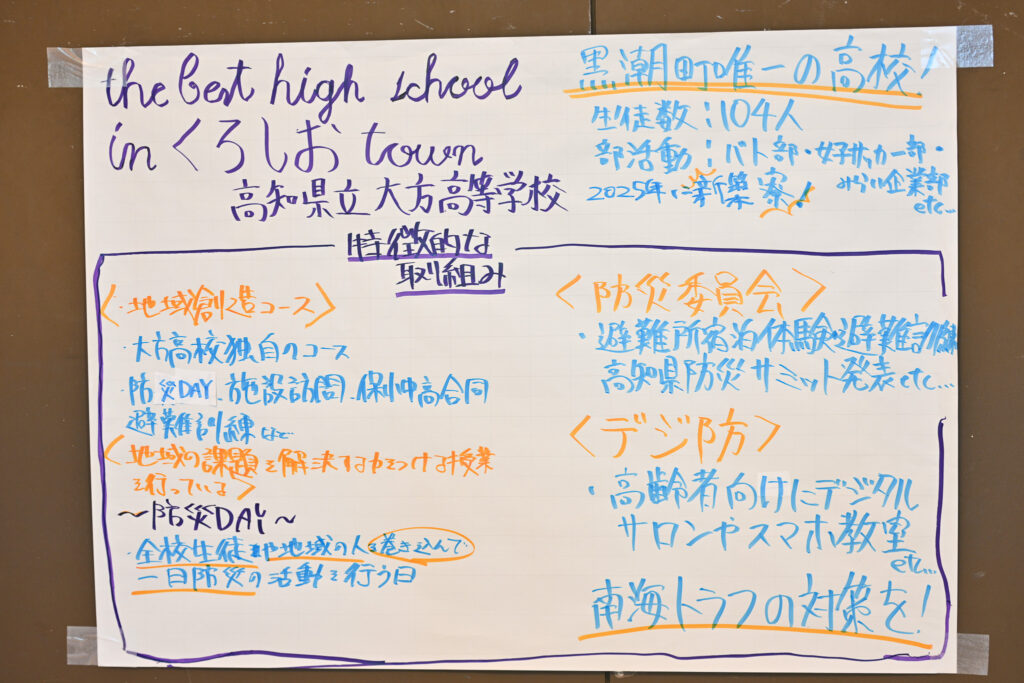 the best high school
in くろしお town
高知県立大方高等学校
黒潮町唯一の高校!
生徒数:104人
部活動:バド部・女子サッカー部・
みらい企業部
etc...
2025年に新築寮!
特徴的な
取り組み
〈・地域創造コース〉
・大方高校独自のコース
・防災DAY、施設訪問、保小中高合同
避難訓練 など
〈地域の課題を解決する力をつける授業
を行っている〉
～防災DAY～
・全校生徒や地域の人を巻き込んで
一日防災の活動を行う日
〈防災委員会〉
・避難所宿泊体験や避難訓練
高知県防災サミット発表etc...
〈デジ防〉
・高齢者向けにデジタル
サロンやスマホ教室
etc...
南海トラフの対策を!